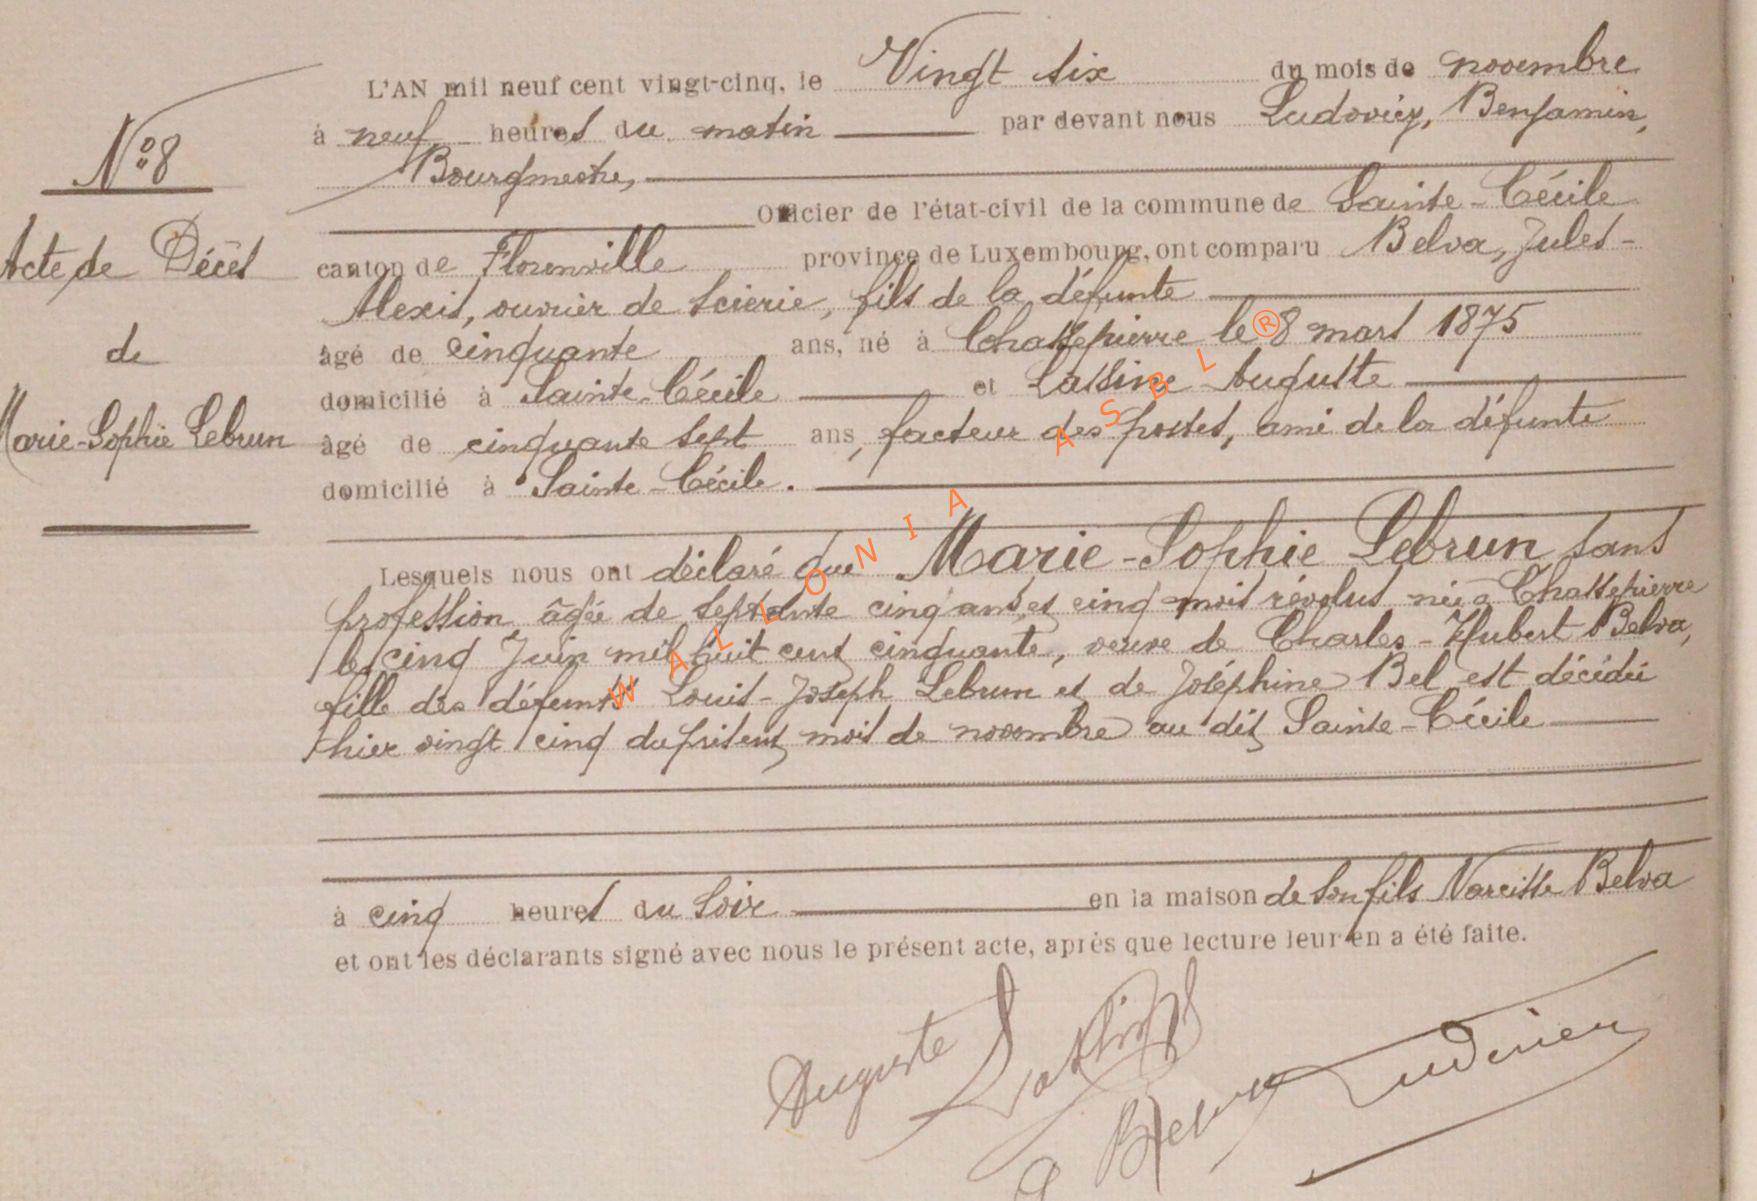 L'AN mil neuf cent vingt-cinq, le Vingt six du mois de novembre
à neuf heures du matin par devant nous Ludovicy, Benjamin,
Bourgmestre,
Officier de l'état-civil de la commune de Sainte-Cécile
canton de Florenville province de Luxembourg, ont comparu Belva, Jules-
Alexis, ouvrier de scierie, fils de la défunte
âgé de cinquante ans, né à Chassepierre le 8 mars 1875
domicilié à Sainte-Cécile et Lassine Auguste
âgé de cinquante sept ans, facteur des postes, ami de la défunte
domicilié à Sainte-Cécile.
N°8
Acte de Décès
de
Marie-Sophie Lebrun
Lesquels nous ont déclaré que Marie-Sophie Lebrun sans
profession âgée de septante cinq ans et cinq mois révolus née à Chassepierre
le cinq Juin mil huit cent cinquante, veuve de Charles-Hubert Belva,
fille des défunts Louis-Joseph Lebrun et de Joséphine Bel est décédée
hier vingt cinq du présent mois de novembre au dit Sainte-Cécile
à cinq heures du soir en la maison de son fils Narcisse Belva
et ont les déclarants signé avec nous le présent acte, après que lecture leur en a été faite.
Auguste Lassine
WALLONIA ASBL ®